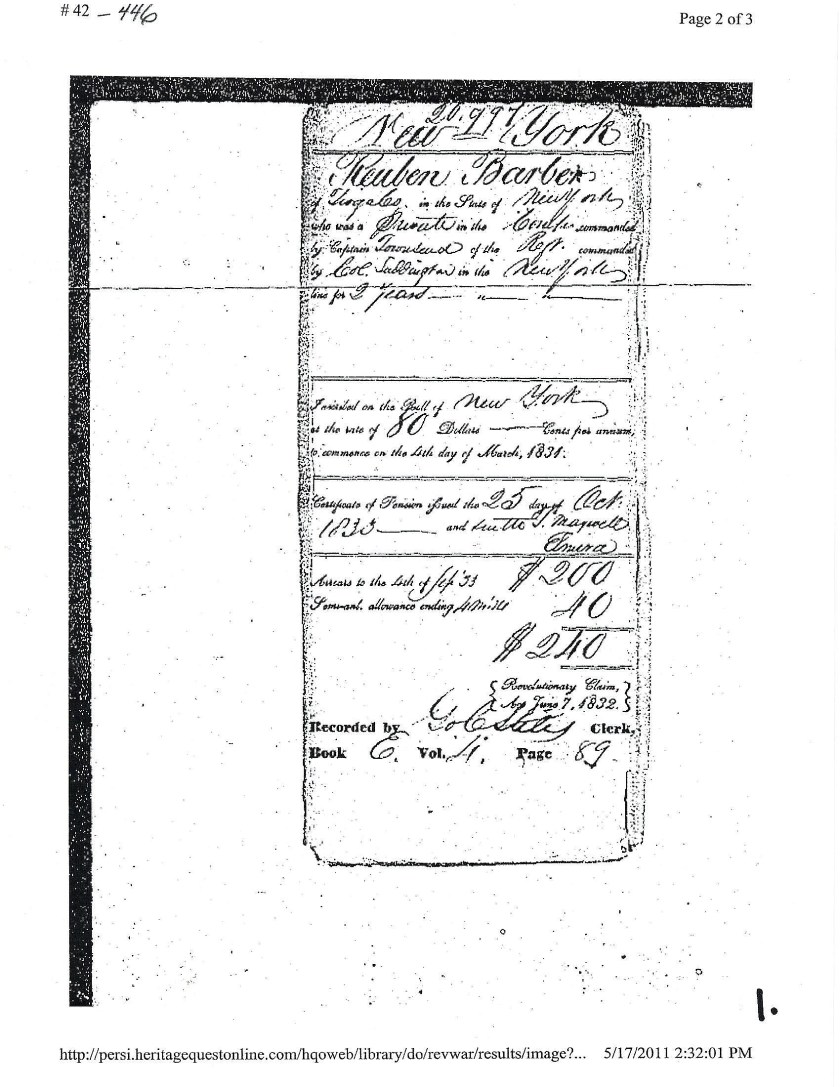 # 42 – 446
Page 2 of 3
20.997
New York
Reuben Barber
of in the State of New York
who was a Private in the commanded
by Captain Townsend of the Regt. commanded
by Col. in the New York
line for 2 years
Inscribed on the Roll of New York
at the rate of 80 Dollars —— Cents per annum,
to commence on the 4th day of March, 1831.
Certificate of Pension issued the 25 day of Oct.
1833 —— and T. Maxwell
Elmira
Arrears to the 4th of Sep '33 $ 200
Semi-anl. allowance ending 40
$ 240
{ Revolutionary Claim, }
{ Act June 7, 1832. }
Recorded by Clerk,
Book E. Vol. 4. Page 89.
1.
http://persi.heritagequestonline.com/hqoweb/library/do/revwar/results/image?... 5/17/2011 2:32:01 PM